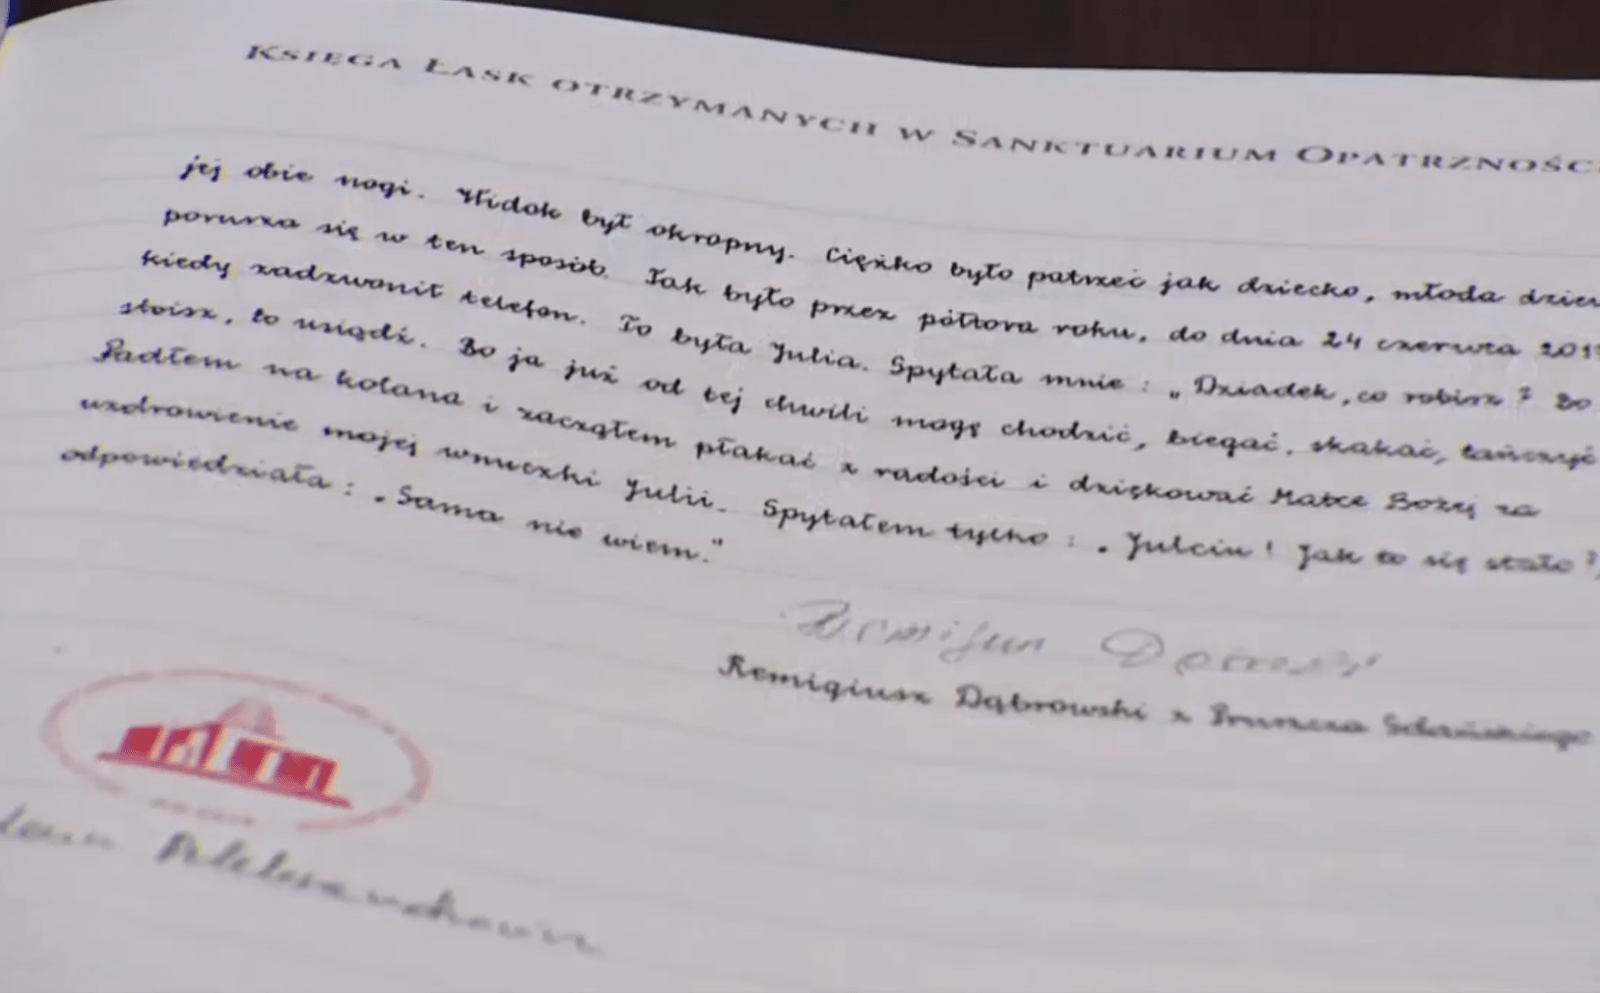 KSIĘGA ŁASK OTRZYMANYCH W SANKTUARIUM OPATRZNOŚC
jej obie nogi. Widok był okropny. Ciężko było patrzeć jak dziecko, młoda dziew
porusza się w ten sposób. Tak było przez półtora roku, do dnia 24 czerwca 201
kiedy zadzwonił telefon. To była Julia. Spytała mnie: „Dziadek, co robisz? Bo
stoisz, to usiądź. Bo ja już od tej chwili mogę chodzić, biegać, skakać, tańczyć
Padłem na kolana i zacząłem płakać z radości i dziękować Matce Bożej za
uzdrowienie mojej wnuczki Julii. Spytałem tylko: „Julciu! Jak to się stało?
odpowiedziała: „Sama nie wiem."
Remigiusz Dąbrowski z Pruszcza Gdańskiego